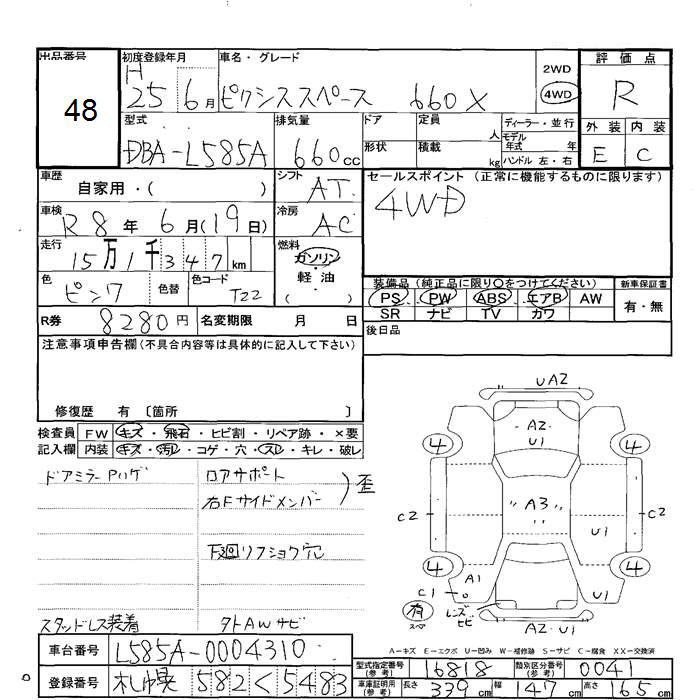 出品番号 初度登録年月 車名・グレード 評価点
48
H 25 6月 ピクシススペース 660 X
2WD
4WD
R
型式 排気量 ドア 定員 人 ディーラー・並行
モデル年式 年
外装 内装
DBA-L585A 660cc 形状 積載 kg ハンドル 左・右 E C
車歴 シフト セールスポイント (正常に機能するものに限ります)
自家用・( ) AT 4WD
車検 冷房
R8年 6月(19日) AC
走行 燃料
15万1千347km ガソリン
・
軽油
( )
色 色替 色コード
ピンク T22
装備品(純正品に限り○をつけてください) 新車保証書
PS PW ABS エアB AW 有・無
SR ナビ TV カワ
R券 8280円 名変期限 月 日
後日品
注意事項申告欄(不具合内容等は具体的に記入して下さい)
修復歴 有 〔箇所 〕
検査員 FW キズ・飛石・ヒビ割・リペア跡・×要
記入欄 内装 キズ・汚レ・コゲ・穴・スレ・キレ・破レ
ドアミラーPハゲ ロアサポート
右Fサイドメンバー )歪
下廻リフショウ穴
スタッドレス装着 タトAWサビ
UA2
A2
U1
4 4
C2 "A3" C2
U1
4 4
A1 U1
C1
有
スペア
レンズヒビ
A2・U1
A-キズ E-エクボ U-凹み W-補修跡 S-サビ C-腐食 XX-交換済
車台番号 L585A-0004310
型式指定番号(参考) 16818 類別区分番号(参考) 0041
登録番号 札幌 582 く 5483
車庫証明用(参考) 長さ 339cm 幅 147cm 高さ 165cm